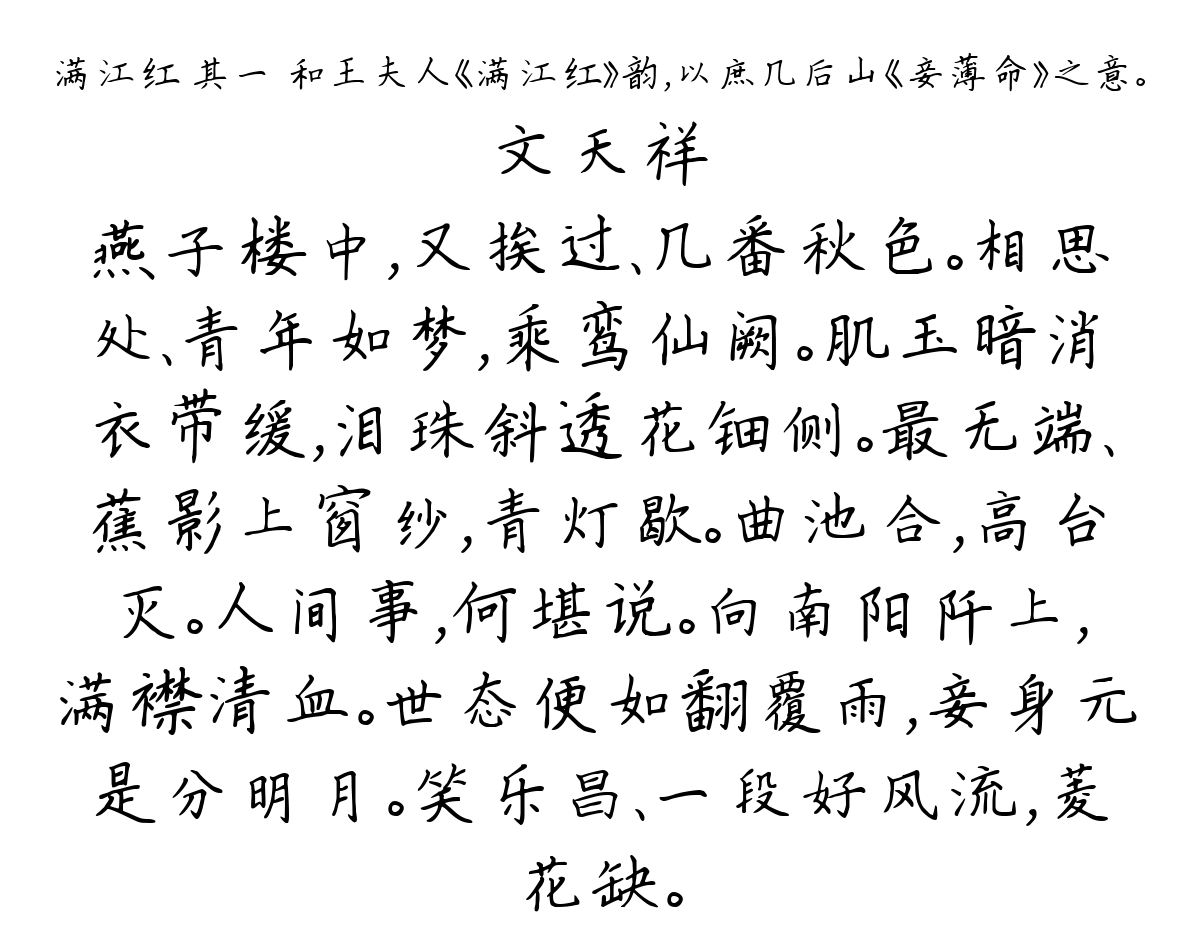 满江红 其一 和王夫人《满江红》韵,以庶几后山《妾薄命》之意。
文天祥
燕子楼中,又挨过、几番秋色。相思
处、青年如梦,乘鸾仙阙。肌玉暗消
衣带缓,泪珠斜透花钿侧。最无端、
蕉影上窗纱,青灯歇。曲池合,高台
灭。人间事,何堪说。向南阳阡上,
满襟清血。世态便如翻覆雨,妾身元
是分明月。笑乐昌、一段好风流,菱
花缺。